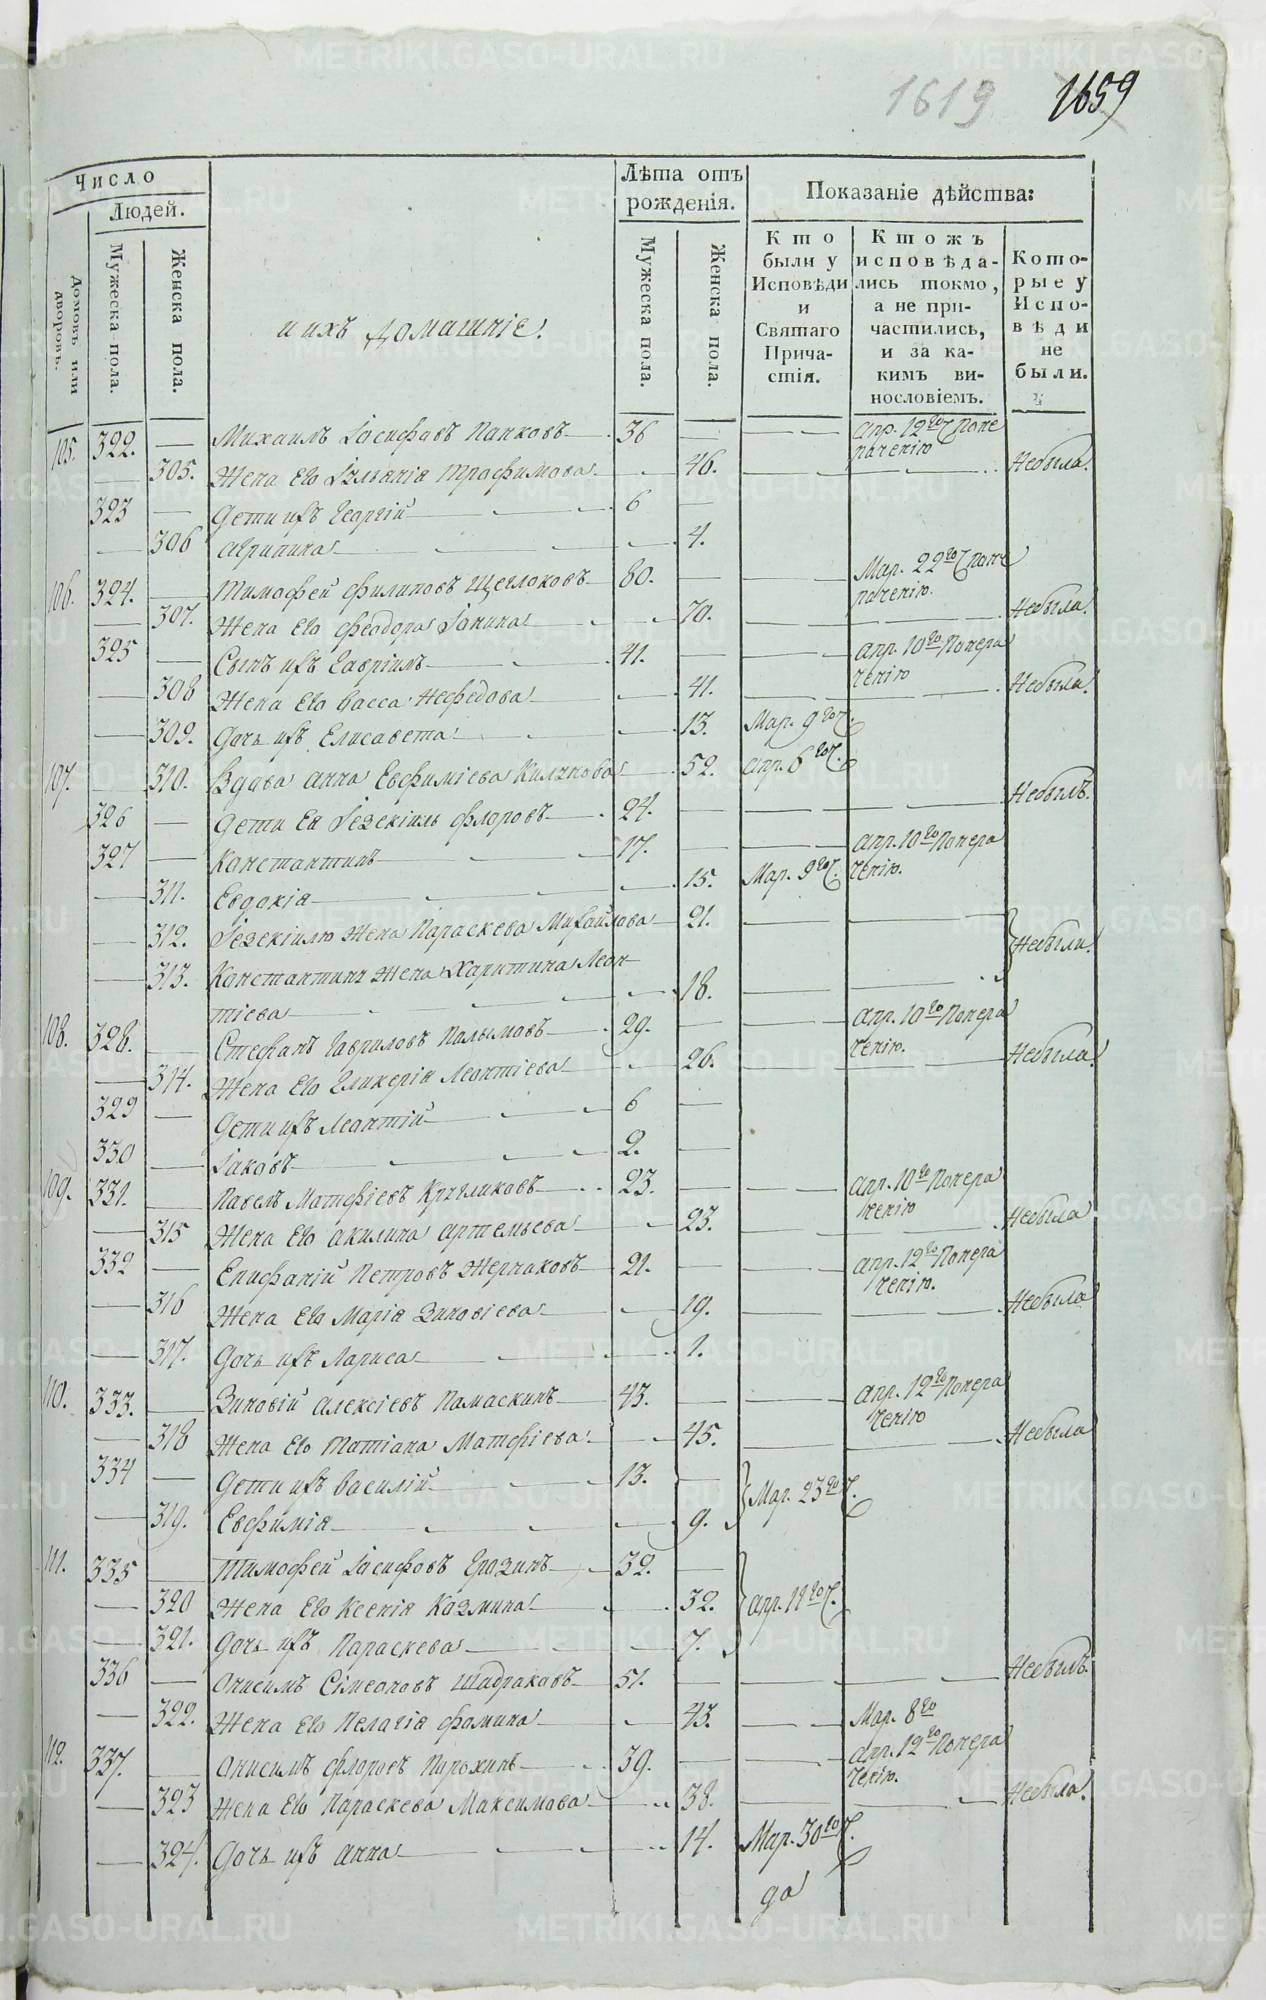 1619 1659
Число
Людей.
Домовъ или дворовъ.
Мужеска пола.
Женска пола.
и ихъ домашніе.
Лѣта отъ рожденія.
Мужеска пола.
Женска пола.
Показаніе дѣйства:
Кто были у Исповѣди и Святаго Причастія.
Ктожъ исповѣдались токмо, а не причастились, и за какимъ винословіемъ.
Которые у Исповѣди не были.
105. 322. Михаилъ Іосифовъ Папковъ 36 апр. 12го
305. Жена Его Трофимова 46. Небыла.
323 Дети ихъ Георгій 6
306 Агрипина 4.
106. 324. Тимофей Филиповъ Щеглоковъ 80. Мар. 22го
307. Жена Его Феодора 70. Небыла.
325 Сынъ ихъ Гавріилъ 41. апр. 10го Понерачению
308 Жена Его Васса Нефедова 41. Небыла.
309. Дочь ихъ Елисавета 13. Мар. 9го
107. 310. Вдова Анна Евфиміева 52. апр. 6го
326 Дети Ея Іезекіиль Флоровъ 24. Небылъ.
327 Константинъ 17. апр. 10го Понерачению.
311. Евдокія 15. Мар. 9го
312. Іезекіилю Жена Параскева Михайлова 21. Небыли.
313. Константину Жена Харитина Леон
тіева 18.
108. 328. Стефанъ Гавриловъ Палымовъ 29. апр. 10го Понерачению.
314. Жена Его Гликерія Леонтіева 26. Небыла.
329 Дети ихъ Леонтій 6
330 Іаковъ 2.
109. 331. Павелъ Матфіевъ Кругликовъ 23. апр. 10го Понерачению
315 Жена Его Акилина Артемьева 23. Небыла
332 Епифаній Петровъ 21. апр. 12го Понерачению.
316 Жена Его Марія Зиновіева 19. Небыла
317. Дочь ихъ Лариса 1.
110. 333. Зиновій Алексіевъ Памаскинъ 43. апр. 12го Понерачению
318 Жена Его Татіана Матфіева 45. Небыла
334 Дети ихъ Василій 13. Мар. 23го
319. Евфимія 9.
111. 335 Тимофей Іосифовъ 32.
320 Жена Его Ксенія Козмина 32. апр. 12го
321. Дочь ихъ Параскева 7.
336 Онисимъ Сімеоновъ Шадраковъ 51. Небылъ.
322. Жена Его Пелагія Фомина 43. Мар. 8го
112. 337. Онисимъ Флоровъ Порохинъ 39. апр. 12го Понерачению.
323 Жена Его Параскева Максимова 38. Небыла.
324. Дочь ихъ Анна 14. Мар. 30го
да
METRIKI.GASO-URAL.RU